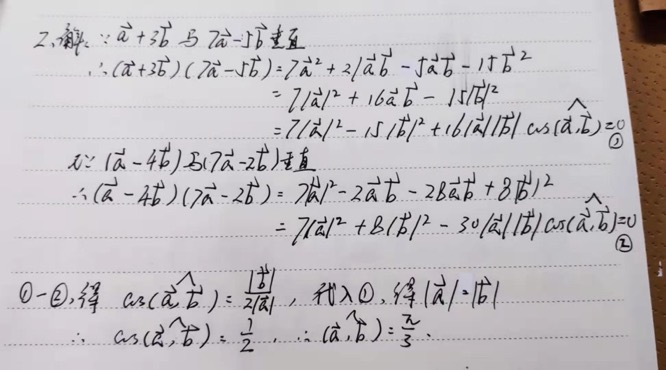 2、解：∵ a⃗+3b⃗ 与 7a⃗-5b⃗ 垂直
∴(a⃗+3b⃗)(7a⃗-5b⃗)=7a⃗²+21a⃗b⃗-5a⃗b⃗-15b⃗²
=7|a⃗|²+16a⃗b⃗-15|b⃗|²
=7|a⃗|²-15|b⃗|²+16|a⃗||b⃗|cos(a⃗,b⃗)=0 ①
又∵(a⃗-4b⃗)与(7a⃗-2b⃗)垂直
∴(a⃗-4b⃗)(7a⃗-2b⃗)=7|a⃗|²-2a⃗b⃗-28a⃗b⃗+8|b⃗|²
=7|a⃗|²+8|b⃗|²-30|a⃗||b⃗|cos(a⃗,b⃗)=0 ②
①-②,得 cos(a⃗,b⃗)=|b⃗|/2|a⃗|,代入①,得|a⃗|=|b⃗|
∴ cos(a⃗,b⃗)=1/2. ∴(a⃗,b⃗)=π/3.